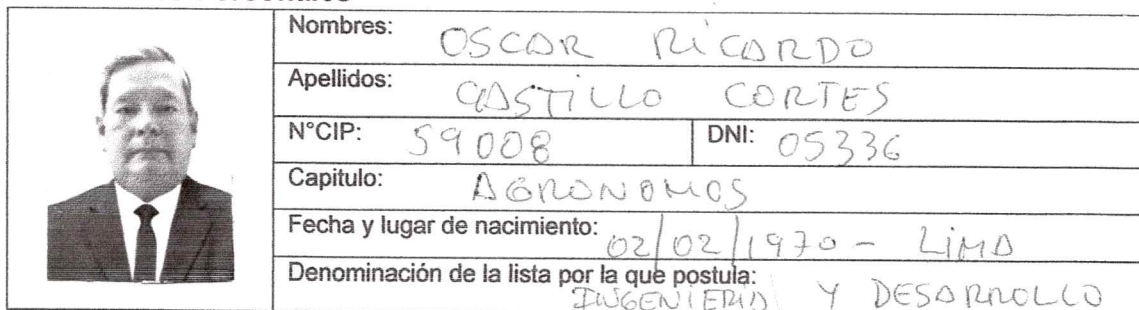 Nombres: OSCAR RICARDO
Apellidos: CASTILLO CORTES
N°CIP: 59008 DNI: 05336
Capitulo: AGRONOMOS
Fecha y lugar de nacimiento: 02/02/1970 - LIMA
Denominación de la lista por la que postula:
INGENIERIA Y DESARROLLO